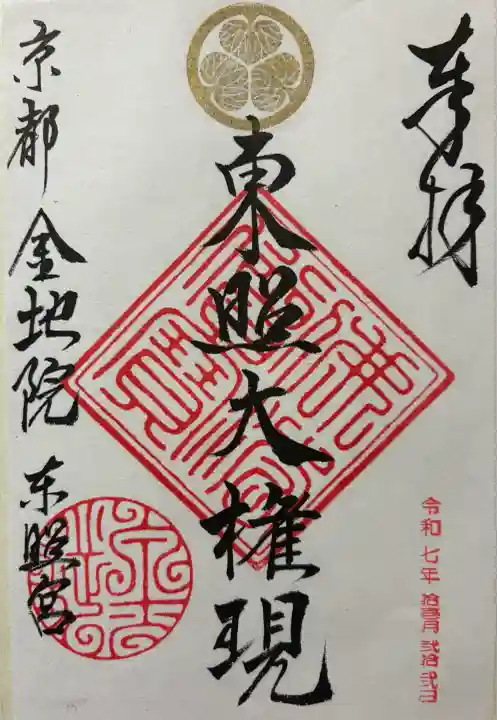 奉拝
令和七年 拾壱月 弐拾弐日
東照大権現
佛法僧寶
京都 金地院 東照宮